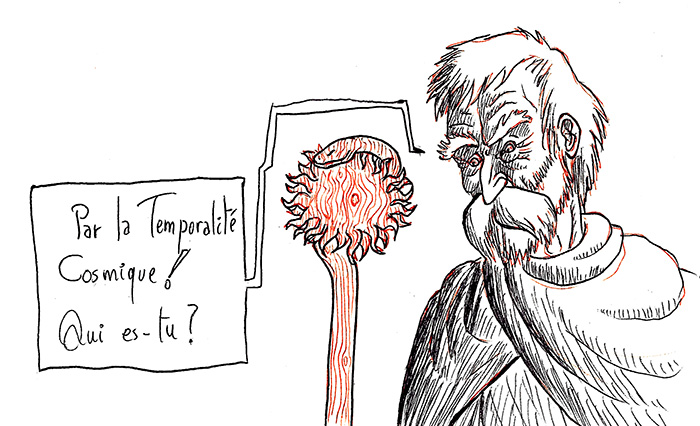 Par la Temporalité
Cosmique !
Qui es-tu ?